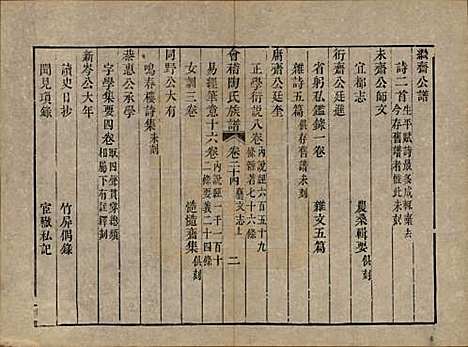 齋公譜
詩二首生平賦詩最多成輒棄去今存舊譜者惟此未刻
未齋公師文
宜都志
農桑輯要俱未刻
衍齋公廷進
省躬私鑑錄一卷
雜文五篇
雜詩五篇俱存舊譜未刻
庸齋公廷奎
正學衍說八卷內說經六百五十九條雜著七十六條
會稽陶氏族譜
卷二十四
藝文志上
二
易經筆意十六卷內說經一千一百十二條要義二十四條
慥慥齋集俱刻
女訓三卷
同野公大有
鳴春樓詩集未刻
恭惠公承學
字學集要四卷取四聲貫穿總類相屬下有訓詁釋刻
新岑公大年
讀史日抄
竹屏偶錄
聞見瑣錄
宦轍私記